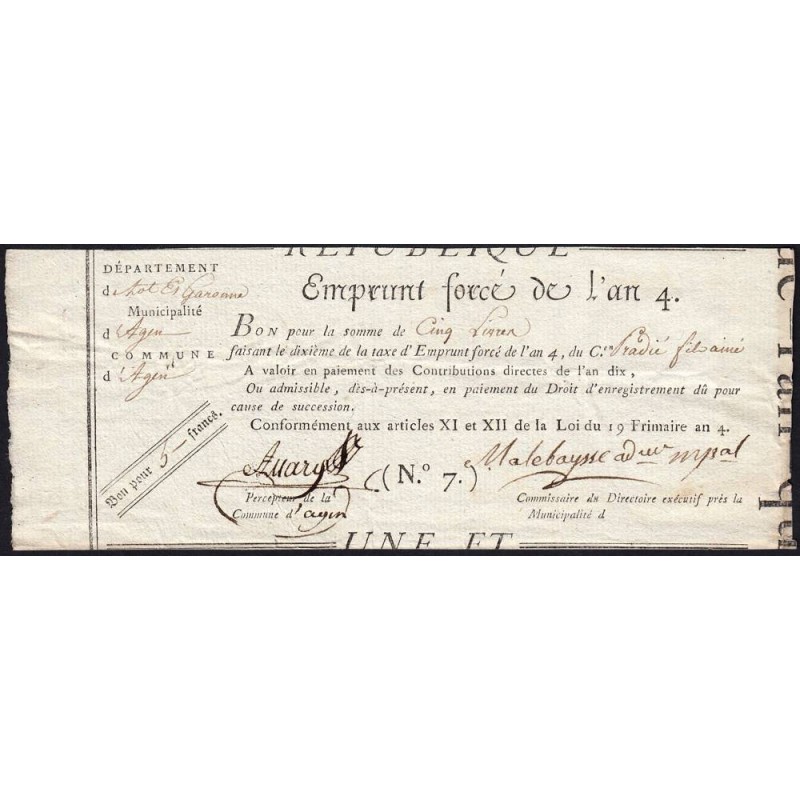 RÉPUBLIQUE
DÉPARTEMENT
d Lot Et Garonne
Municipalité
d Agen
COMMUNE
d'Agen
Bon pour 5 — francs.
Emprunt forcé de l'an 4.
BON pour la somme de Cinq Livres
faisant le dixième de la taxe d'Emprunt forcé de l'an 4, du C.en Pradié fils ainé
A valoir en paiement des Contributions directes de l'an dix,
Ou admissible, dès-à-présent, en paiement du Droit d'enregistrement dû pour
cause de succession.
Conformément aux articles XI et XII de la Loi du 19 Frimaire an 4.
(N.º 7.)
Malebaysse
Percepteur de la
Commune d'agen
Commissaire du Directoire exécutif près la
Municipalité d
UNE ET